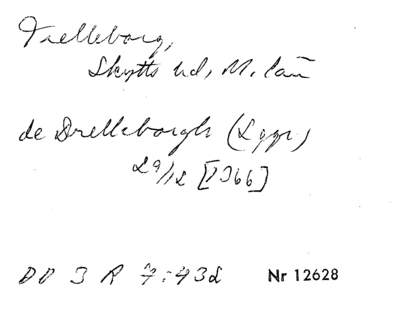 Trelleborg,
Skytts hd, M. län
de Drelleborgh (Lggr)
29/12 [1366]
DD 3 R 7:432
Nr 12628